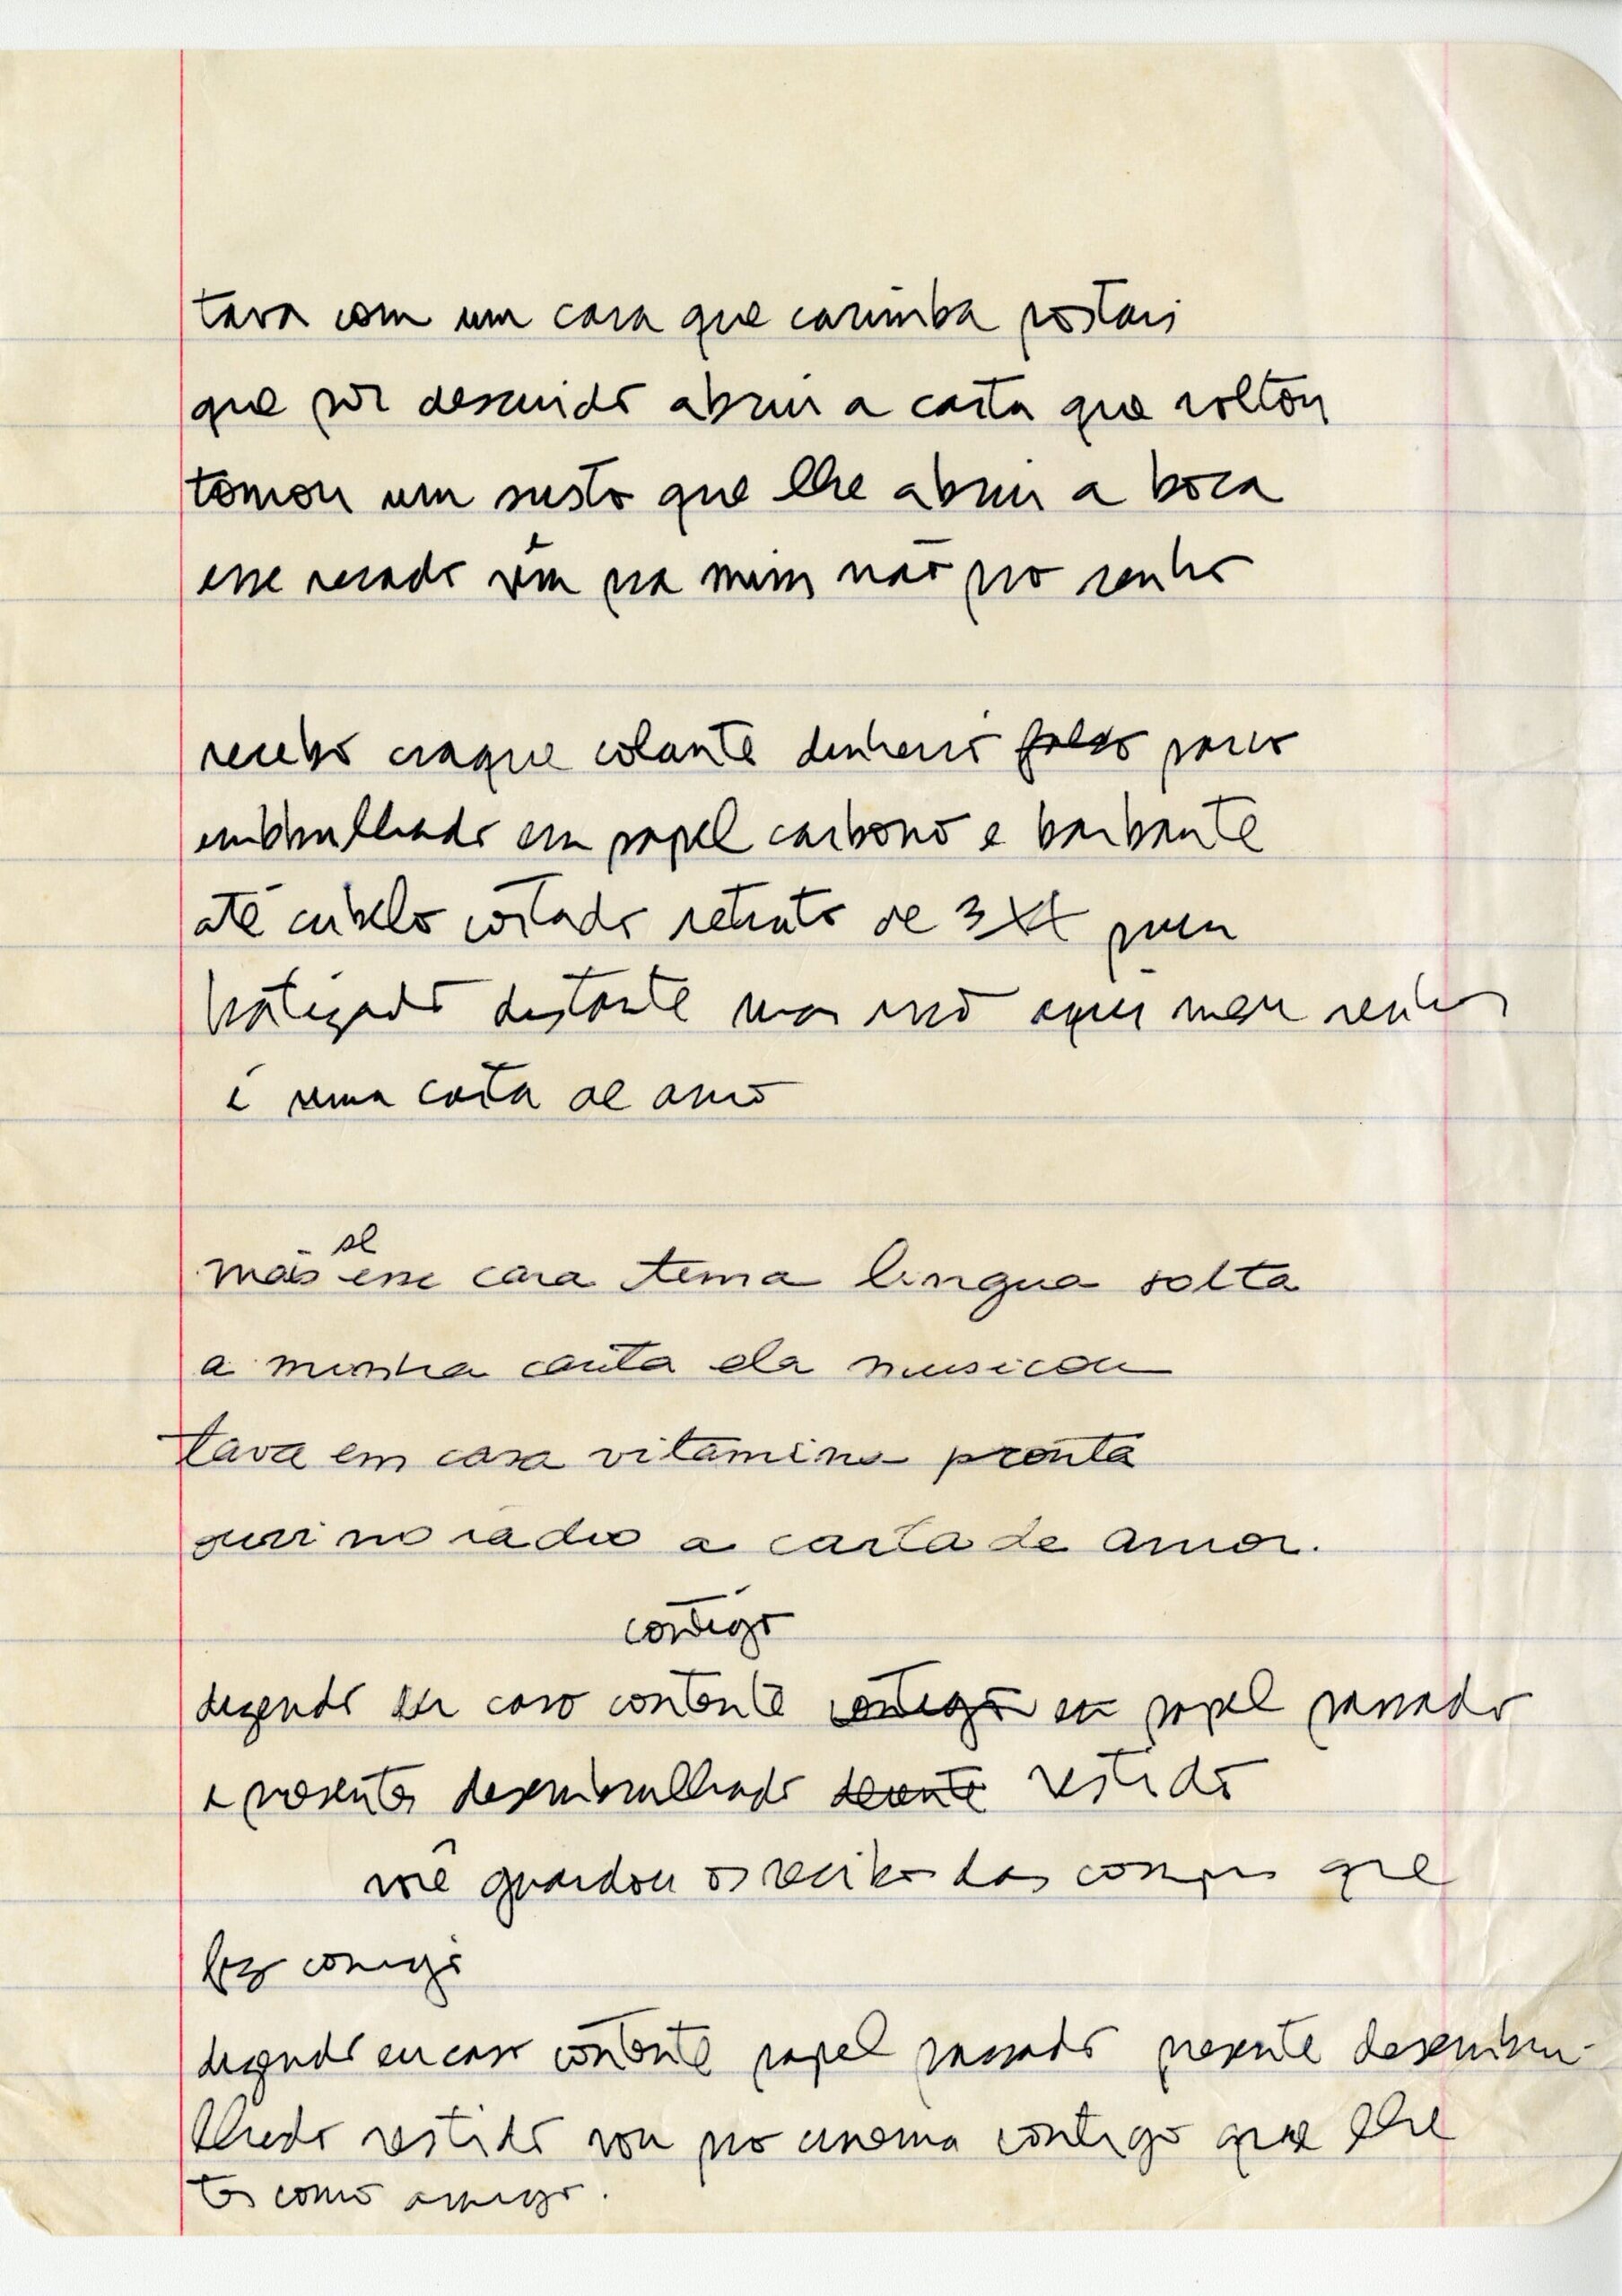 tava com um cara que carimba postais
que por descuido abriu a carta que voltou
tomou um susto que lhe abriu a boca
esse recado vem pra mim não pro senhor
recebo craque colante dinheiro parco
embrulhado em papel carbono e barbante
até cabelo cortado retrato de 3x4 pra
batizado distante mas isso aqui meu senhor
é uma carta de amor
se
mas esse cara tem a lingua solta
a minha carta ele musicou
tava em casa vitamina pronta
ouvi no radio a carta de amor.
contigo
caso contente contigo papel passado
e presente desembrulhado vestido
você guardou os recibos das compras que
fez comigo
caso contente papel passado presente desembru-
lhado vestido vou pro cinema contigo que
como amigo.